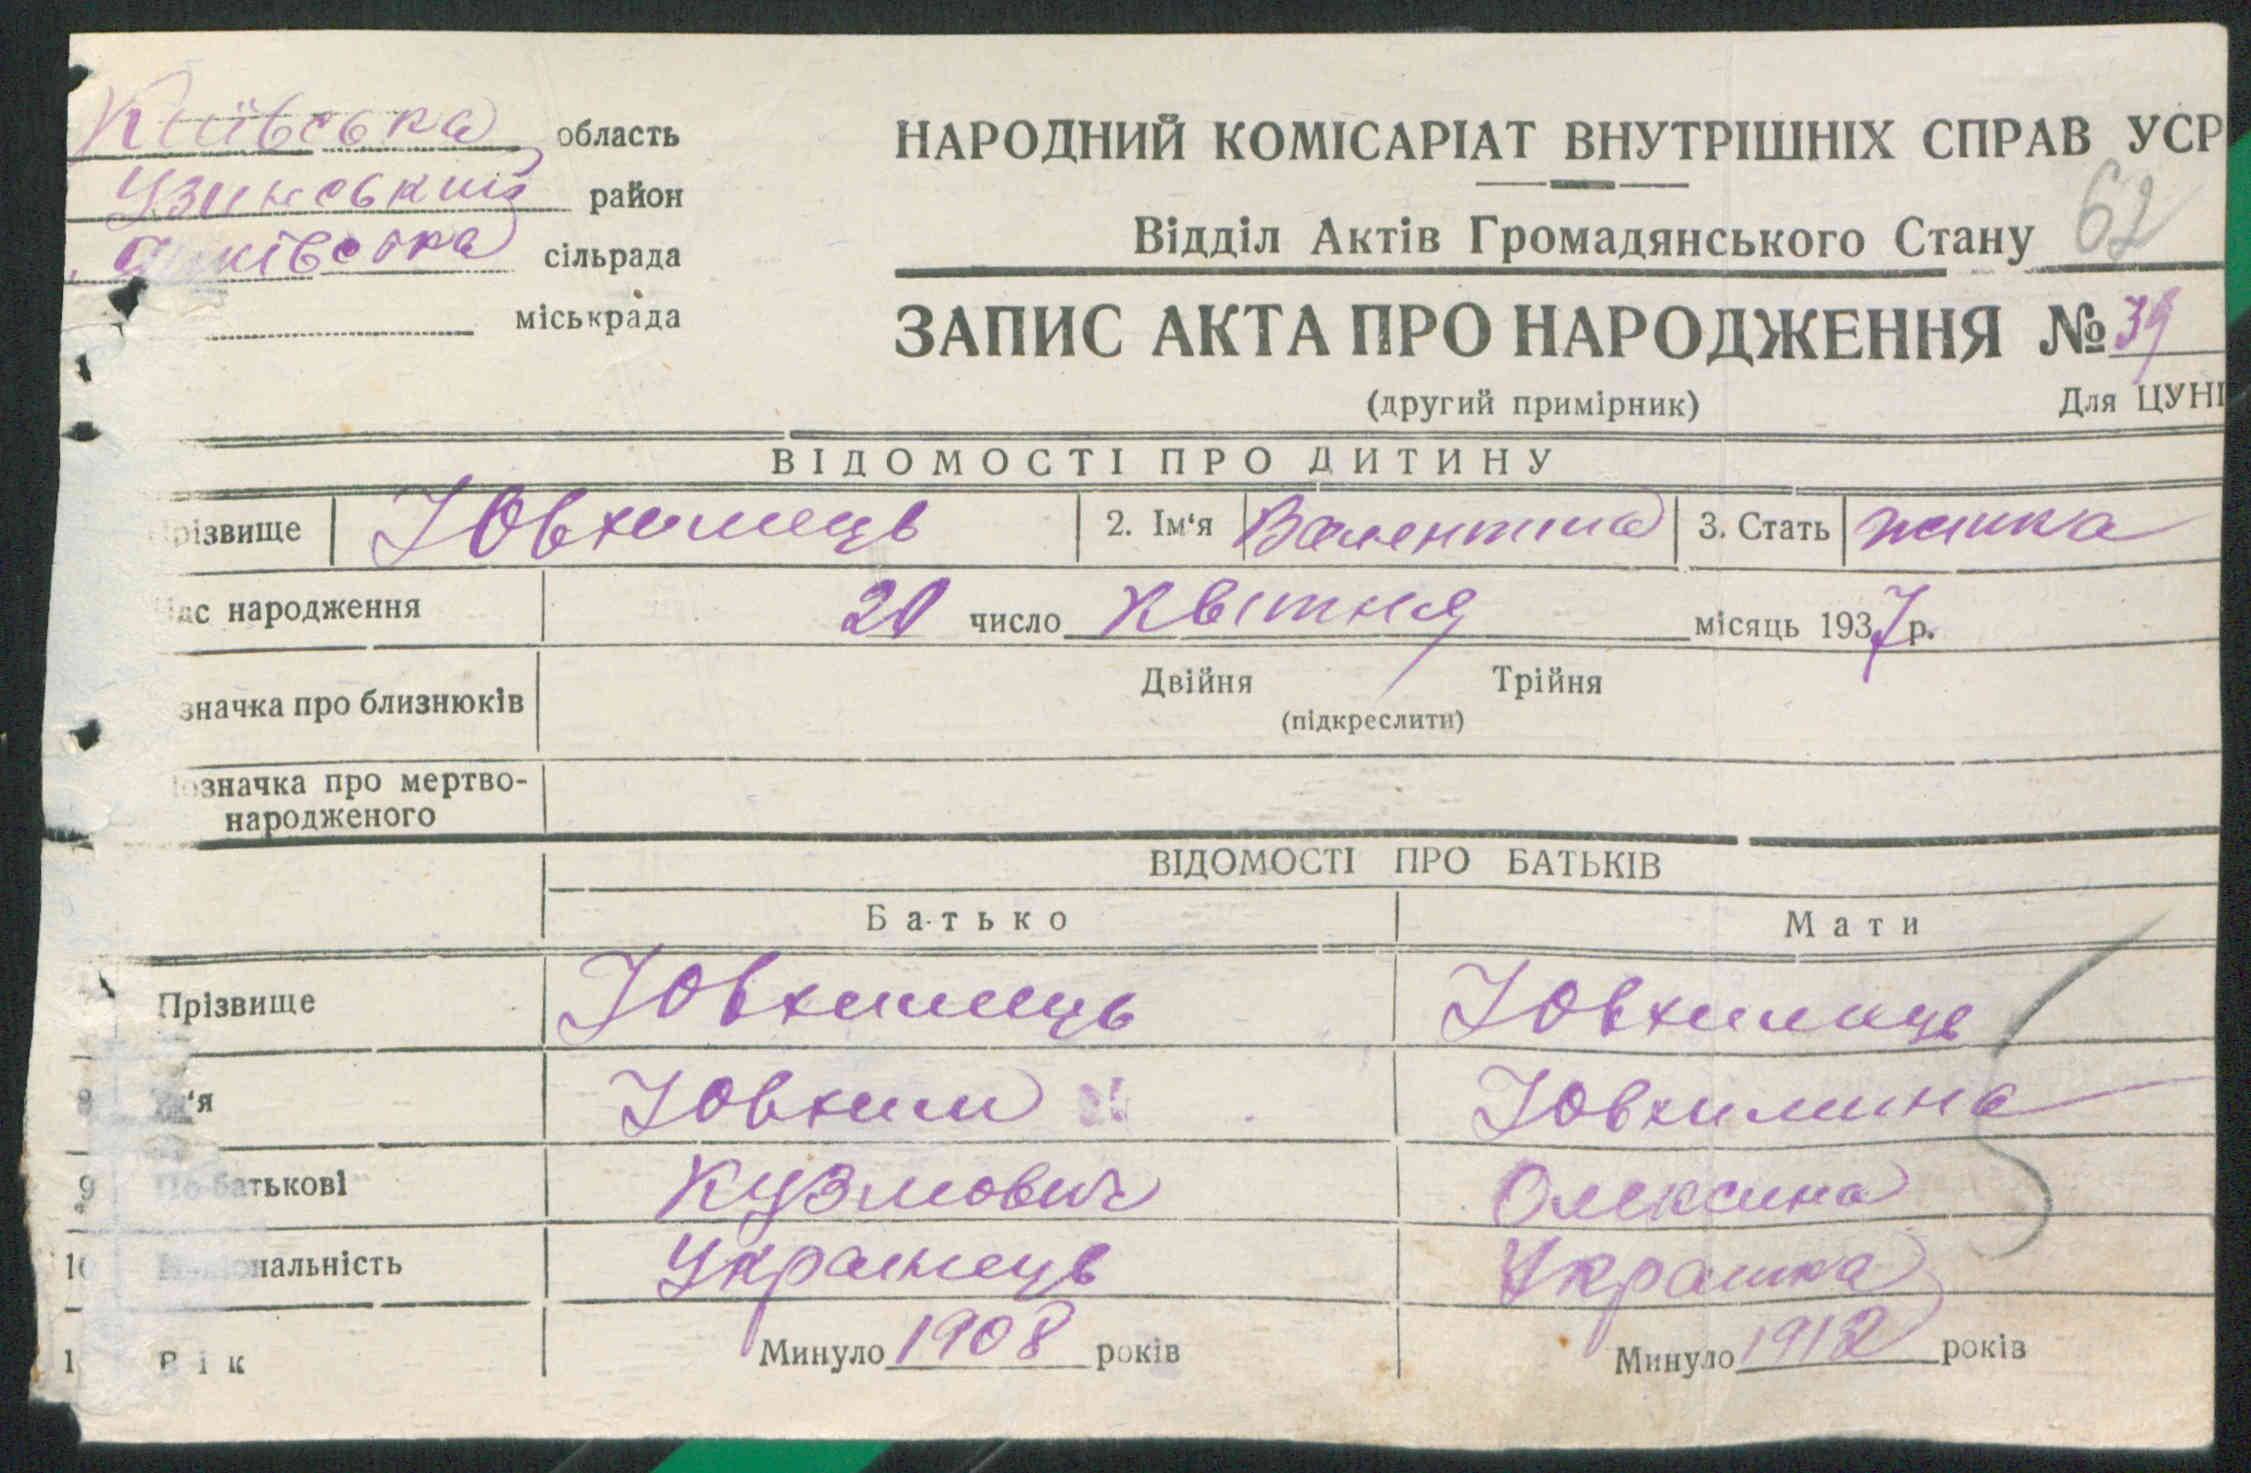 Київська область
Узинський район
сільрада
міськрада
НАРОДНИЙ КОМІСАРІАТ ВНУТРІШНІХ СПРАВ УСР
Відділ Актів Громадянського Стану 62
ЗАПИС АКТА ПРО НАРОДЖЕННЯ № 39
(другий примірник) Для ЦУНГ
ВІДОМОСТІ ПРО ДИТИНУ
різвище Ювхимець 2. Ім'я Валентина 3. Стать жінка
ас народження 20 число Квітня місяць 1937 р.
значка про близнюків Двійня Трійня
(підкреслити)
означка про мертво-
народженого
ВІДОМОСТІ ПРО БАТЬКІВ
Батько Мати
Прізвище Ювхимець Ювхимець
8 Ім'я Ювхим Ювхимина
9 По батькові Кузмович Олексина
10 Національність Українець Українка
1 Вік Минуло 1908 років Минуло 1912 років